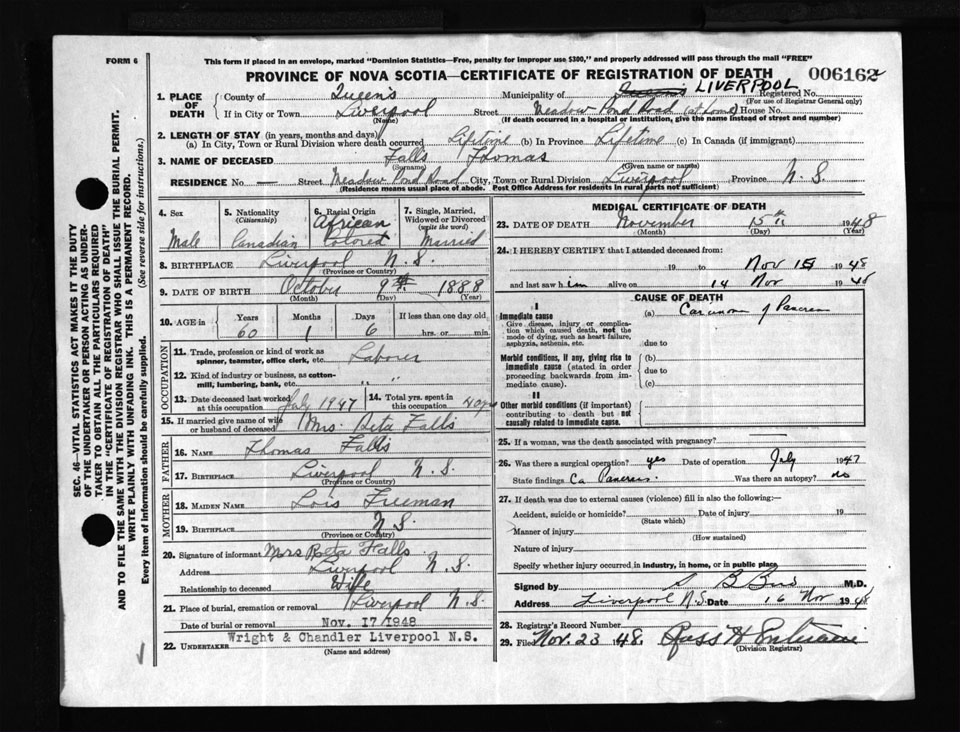 FORM 6
This form if placed in an envelope, marked "Dominion Statistics—Free, penalty for improper use $300," and properly addressed will pass through the mail "FREE"
PROVINCE OF NOVA SCOTIA—CERTIFICATE OF REGISTRATION OF DEATH 006162
SEC. 46—VITAL STATISTICS ACT MAKES IT THE DUTY
OF THE UNDERTAKER OR PERSON ACTING AS UNDER-
TAKER TO OBTAIN ALL THE PARTICULARS REQUIRED
IN THE "CERTIFICATE OF REGISTRATION OF DEATH"
AND TO FILE THE SAME WITH THE DIVISION REGISTRAR WHO SHALL ISSUE THE BURIAL PERMIT.
WRITE PLAINLY WITH UNFADING INK. THIS IS A PERMANENT RECORD.
Every item of information should be carefully supplied. (See reverse side for instructions.)
1. PLACE OF DEATH
County of Queens Municipality of Queens LIVERPOOL Registered No.
(For use of Registrar General only)
If in City or Town Liverpool Street Meadow Pond Road (at home) House No.
(Name) (If death occurred in a hospital or institution, give the name instead of street and number)
2. LENGTH OF STAY (in years, months and days)
(a) In City, Town or Rural Division where death occurred Lifetime (b) In Province Lifetime (c) In Canada (if immigrant)
3. NAME OF DECEASED Falls Thomas
(Surname) (Given name or names)
RESIDENCE No — Street Meadow Pond Road City, Town or Rural Division Liverpool Province N.S.
(Residence means usual place of abode. Post Office Address for residents in rural parts not sufficient)
4. Sex Male
5. Nationality (Citizenship) Canadian
6. Racial Origin African Colored
7. Single, Married, Widowed or Divorced (write the word) Married
8. BIRTHPLACE Liverpool N.S.
(Province or Country)
9. DATE OF BIRTH October 9th 1888
(Month) (Day) (Year)
10. AGE in Years 60 Months 1 Days 6 If less than one day old hrs. or min.
OCCUPATION
11. Trade, profession or kind of work as spinner, teamster, office clerk, etc. Laborer
12. Kind of industry or business, as cotton-mill, lumbering, bank, etc. " "
13. Date deceased last worked at this occupation July 1947
14. Total yrs. spent in this occupation 40 yrs
15. If married give name of wife or husband of deceased Mrs. Reta Falls
FATHER
16. NAME Thomas Falls
17. BIRTHPLACE Liverpool N.S.
(Province or Country)
MOTHER
18. MAIDEN NAME Lois Freeman
19. BIRTHPLACE N.S.
(Province or Country)
20. Signature of informant Mrs Reta Falls
Address Liverpool N.S.
Relationship to deceased Wife
21. Place of burial, cremation or removal Liverpool N.S.
Date of burial or removal Nov. 17/1948
22. UNDERTAKER Wright & Chandler Liverpool N.S.
(Name and address)
MEDICAL CERTIFICATE OF DEATH
23. DATE OF DEATH November 15th 1948
(Month) (Day) (Year)
24. I HEREBY CERTIFY that I attended deceased from:
19 to Nov 15 1948
and last saw him alive on 14 Nov 1948
CAUSE OF DEATH
I
Immediate cause
Give disease, injury or complication which caused death, not the mode of dying, such as heart failure, asphyxia, asthenia, etc.
(a) Carcinoma of Pancreas
due to
Morbid conditions, if any, giving rise to immediate cause (stated in order proceeding backwards from immediate cause).
(b)
due to
(c)
II
Other morbid conditions (if important) contributing to death but not causally related to immediate cause.
25. If a woman, was the death associated with pregnancy? —
26. Was there a surgical operation? yes Date of operation July 1947
State findings Ca Pancreas. Was there an autopsy? no
27. If death was due to external causes (violence) fill in also the following:—
Accident, suicide or homicide? Date of injury 19
(State which)
Manner of injury
(How sustained)
Nature of injury
Specify whether injury occurred in industry, in home, or in public place
Signed by M.D.
Address Liverpool N.S. Date 16 Nov 1948
28. Registrar's Record Number
29. Filed Nov. 23 1948.
(Division Registrar)